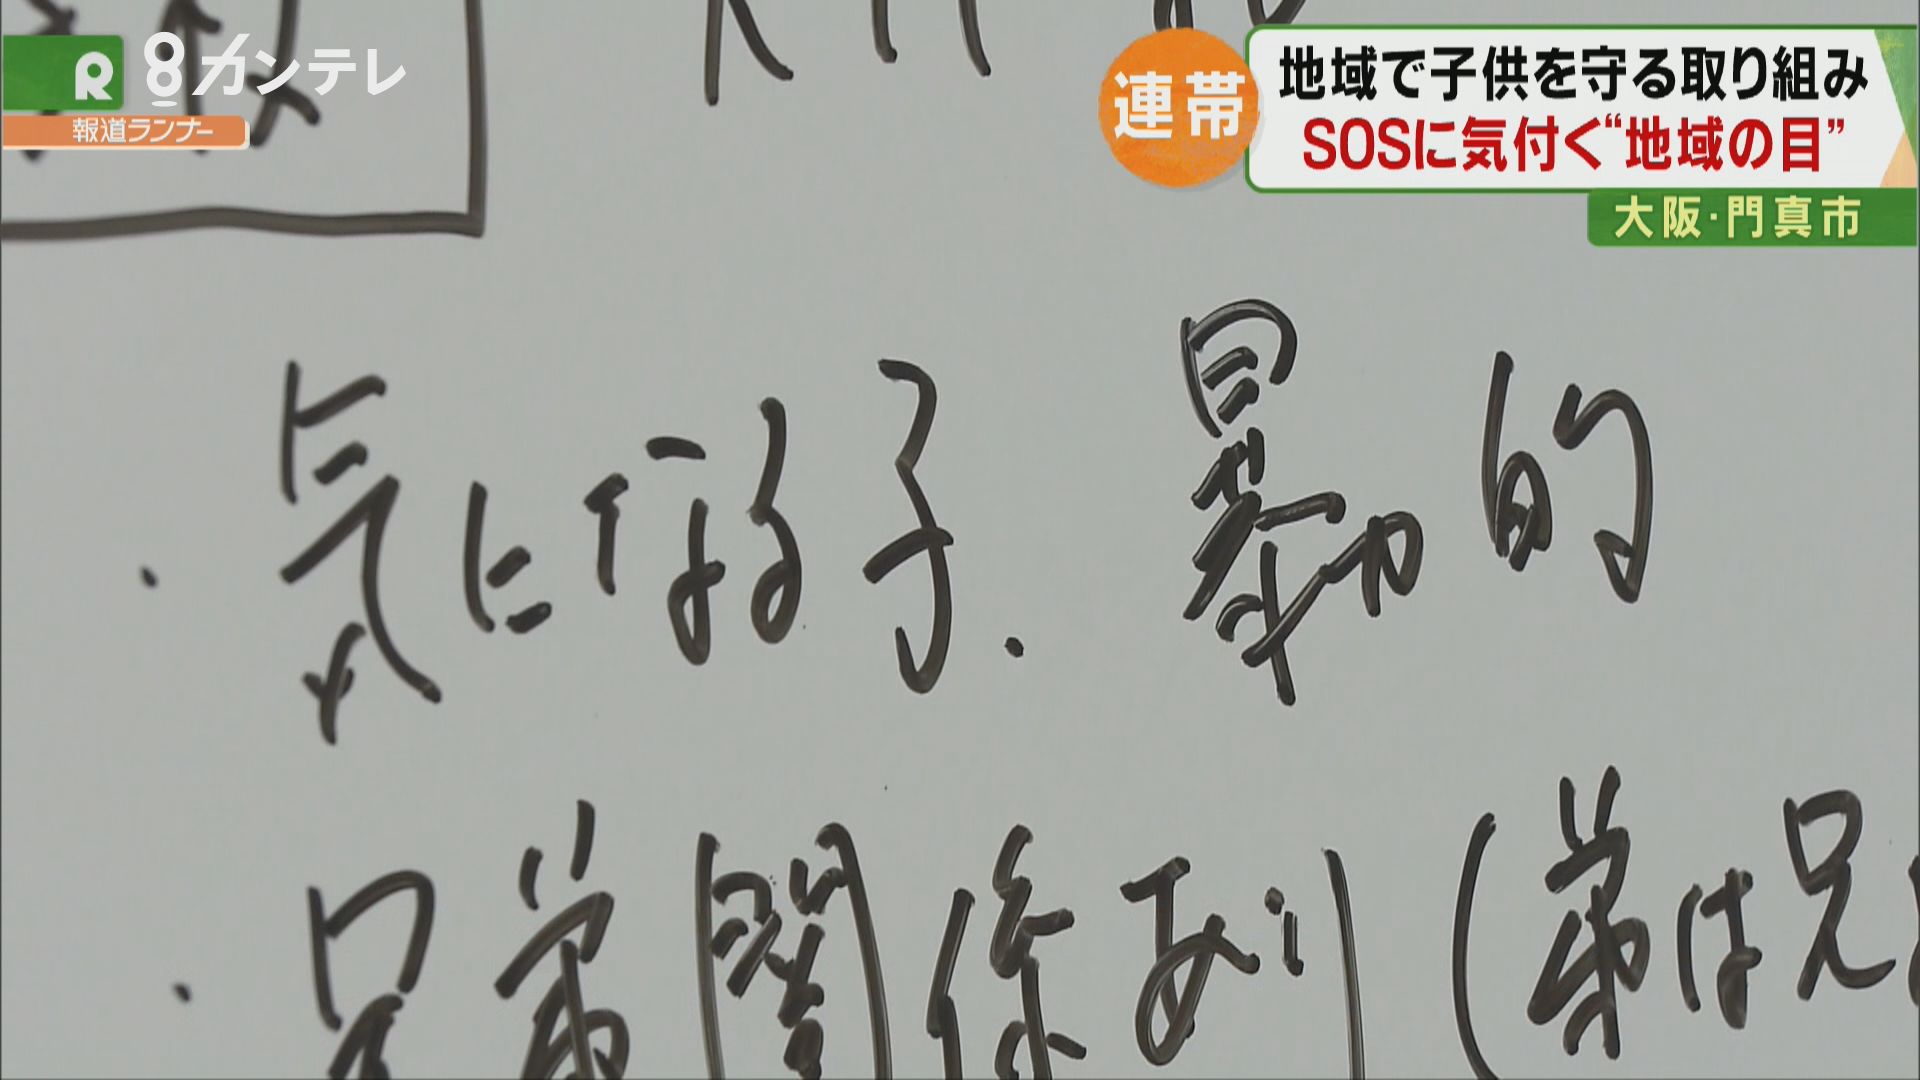 8カンテレ
R
報道ランナー
連帯
地域で子供を守る取り組み
SOSに気付く“地域の目”
大阪・門真市
・気になる子、暴力的
・兄弟関係あり(弟は兄